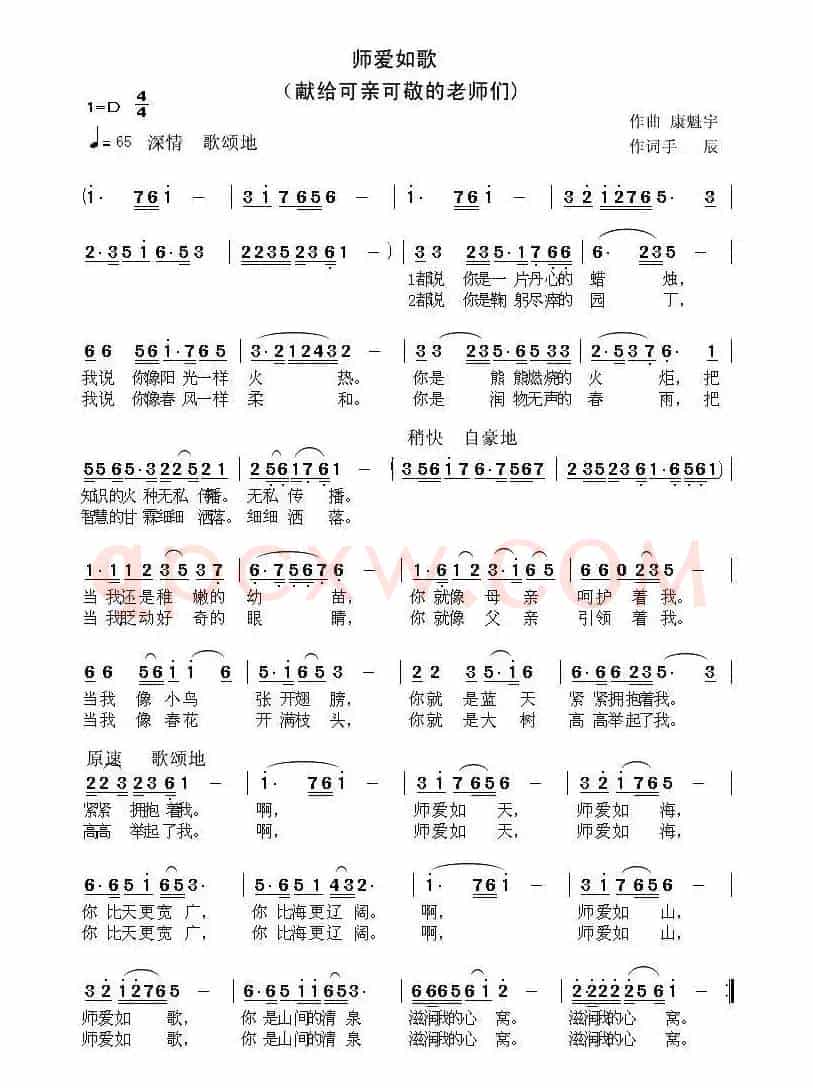 师爱如歌
（献给可亲可敬的老师们）
1=D 4/4
作曲 康魁宇
♩=65 深情 歌颂地
作词手 辰
(1· 761 - | 317656 - | 1· 761 - | 3212765· 3 |
2·351 6·53 | 22352361 -) | 33 235·1766 | 6· 235 - |
1都说 你是一 片丹心的 蜡 烛，
2都说 你是鞠 躬尽瘁的 园 丁，
66 561·765 | 3·212432 - | 33 235·6533 | 2·5376· 1 |
我说 你像阳 光一样 火 热。 你是 熊 熊燃烧的 火 炬，把
我说 你像春 风一样 柔 和。 你是 润 物无声的 春 雨，把
稍快 自豪地
5565·322521 | 2561761 - | (356176·7567 | 2352361 56561) |
知识的火 种无私 传播。 无私 传 播。
智慧的甘 霖细细 洒落。 细细 洒 落。
qpcxw.com
1·1123537 | 6·75676 - | 1·6123·165 | 660235 - |
当 我还是稚 嫩的 幼 苗， 你 就像 母 亲 呵护 着 我。
当 我眨动好 奇的 眼 睛， 你 就像 父 亲 引领 着 我。
66 5611 6 | 5·1653 - | 22 35·1 - | 6·66235·3 |
当我 像 小鸟 张 开翅 膀， 你就 是蓝 天 紧 紧拥抱着我。
当我 像 春花 开 满枝 头， 你就 是大 树 高 高举起了我。
原速 歌颂地
2232361 - | 1· 761 - | 3176 5 - | 3217 6 - |
紧紧 拥抱 着我。 啊， 师爱如 天， 师爱如 海，
高高 举起了 我。 啊， 师爱如 天， 师爱如 海，
6·651 653· | 3·651 432· | 1· 761 - | 3176 5 - |
你 比天更宽 广， 你 比海更辽 阔。 啊， 师爱如 山，
你 比天更宽 广， 你 比海更辽 阔。 啊， 师爱如 山，
3212765 - | 6·651 1653 - | 66665612 - | 2·22222561 - :|
师爱如 歌， 你 是山间的清 泉 滋润我的心 窝。 滋润我的心 窝。
师爱如 歌， 你 是山间的清 泉 滋润我的心 窝。 滋润我的心 窝。